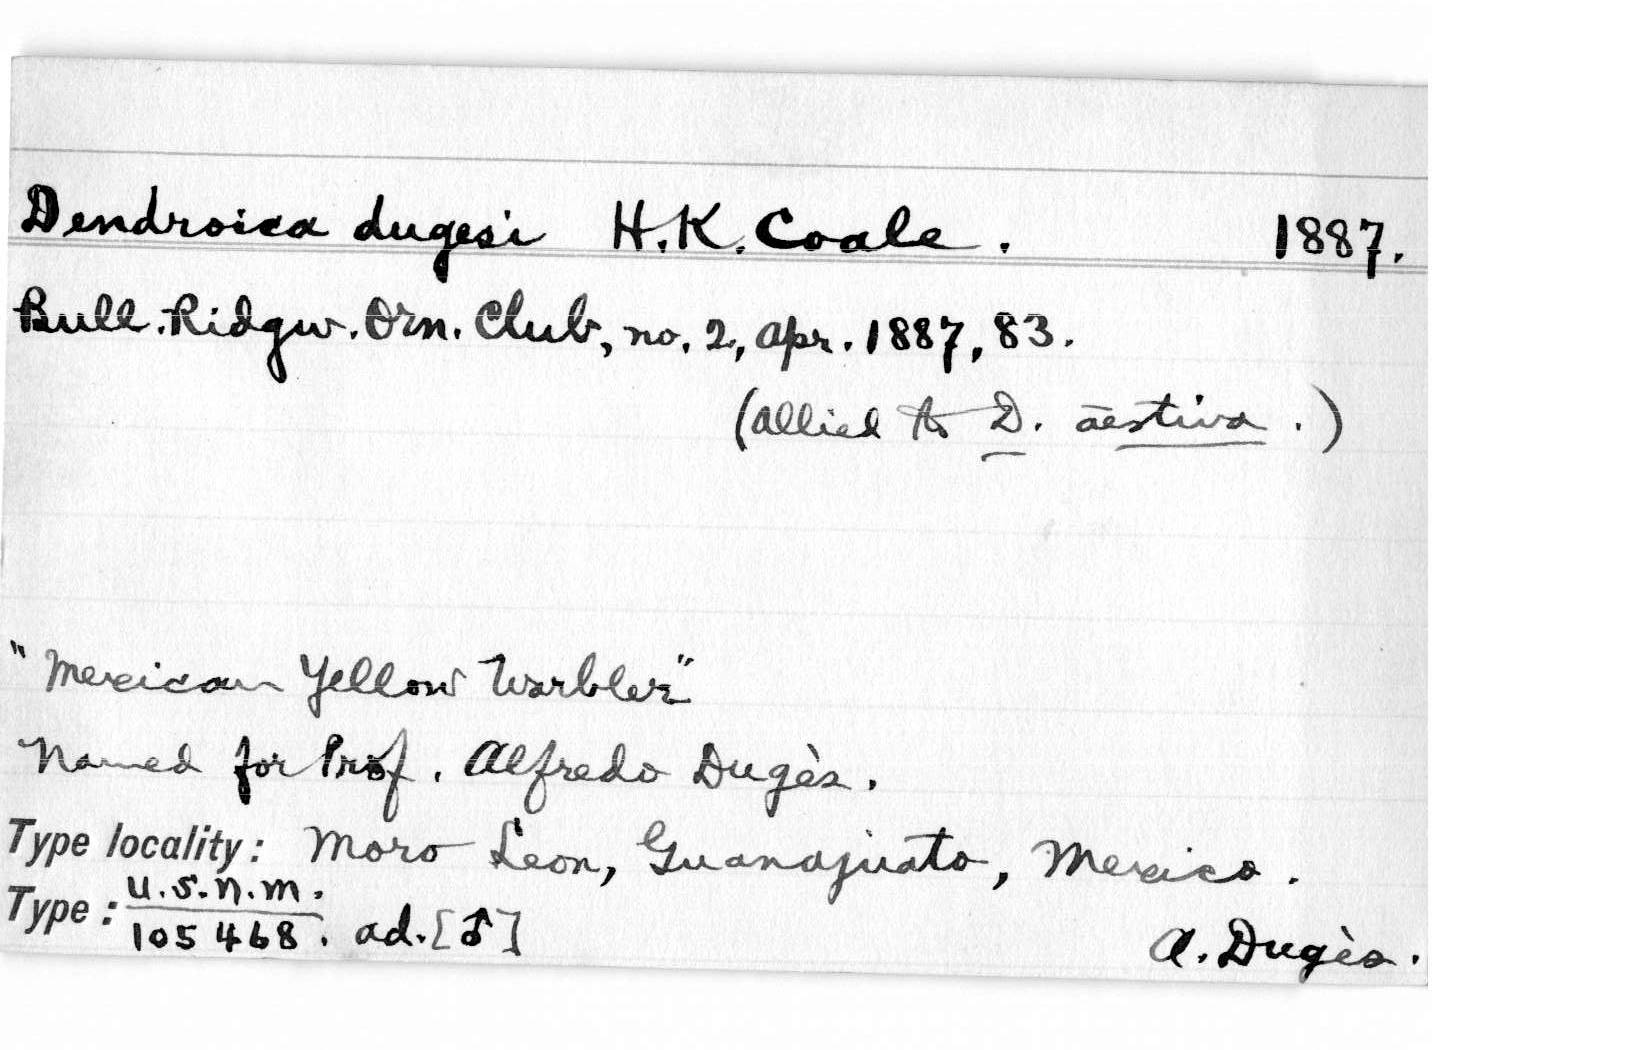 Dendroica dugesi H.K. Coale. 1887.
Bull. Ridgw. Orn. Club, no. 2, Apr. 1887, 83.
(Allied to D. aestiva.)
"Mexican Yellow Warbler"
Named for Prof. Alfredo Dugès.
Type locality: Moro Leon, Guanajuato, Mexico.
Type: U.S.N.M.
105468. ad. [♂] A. Dugès.